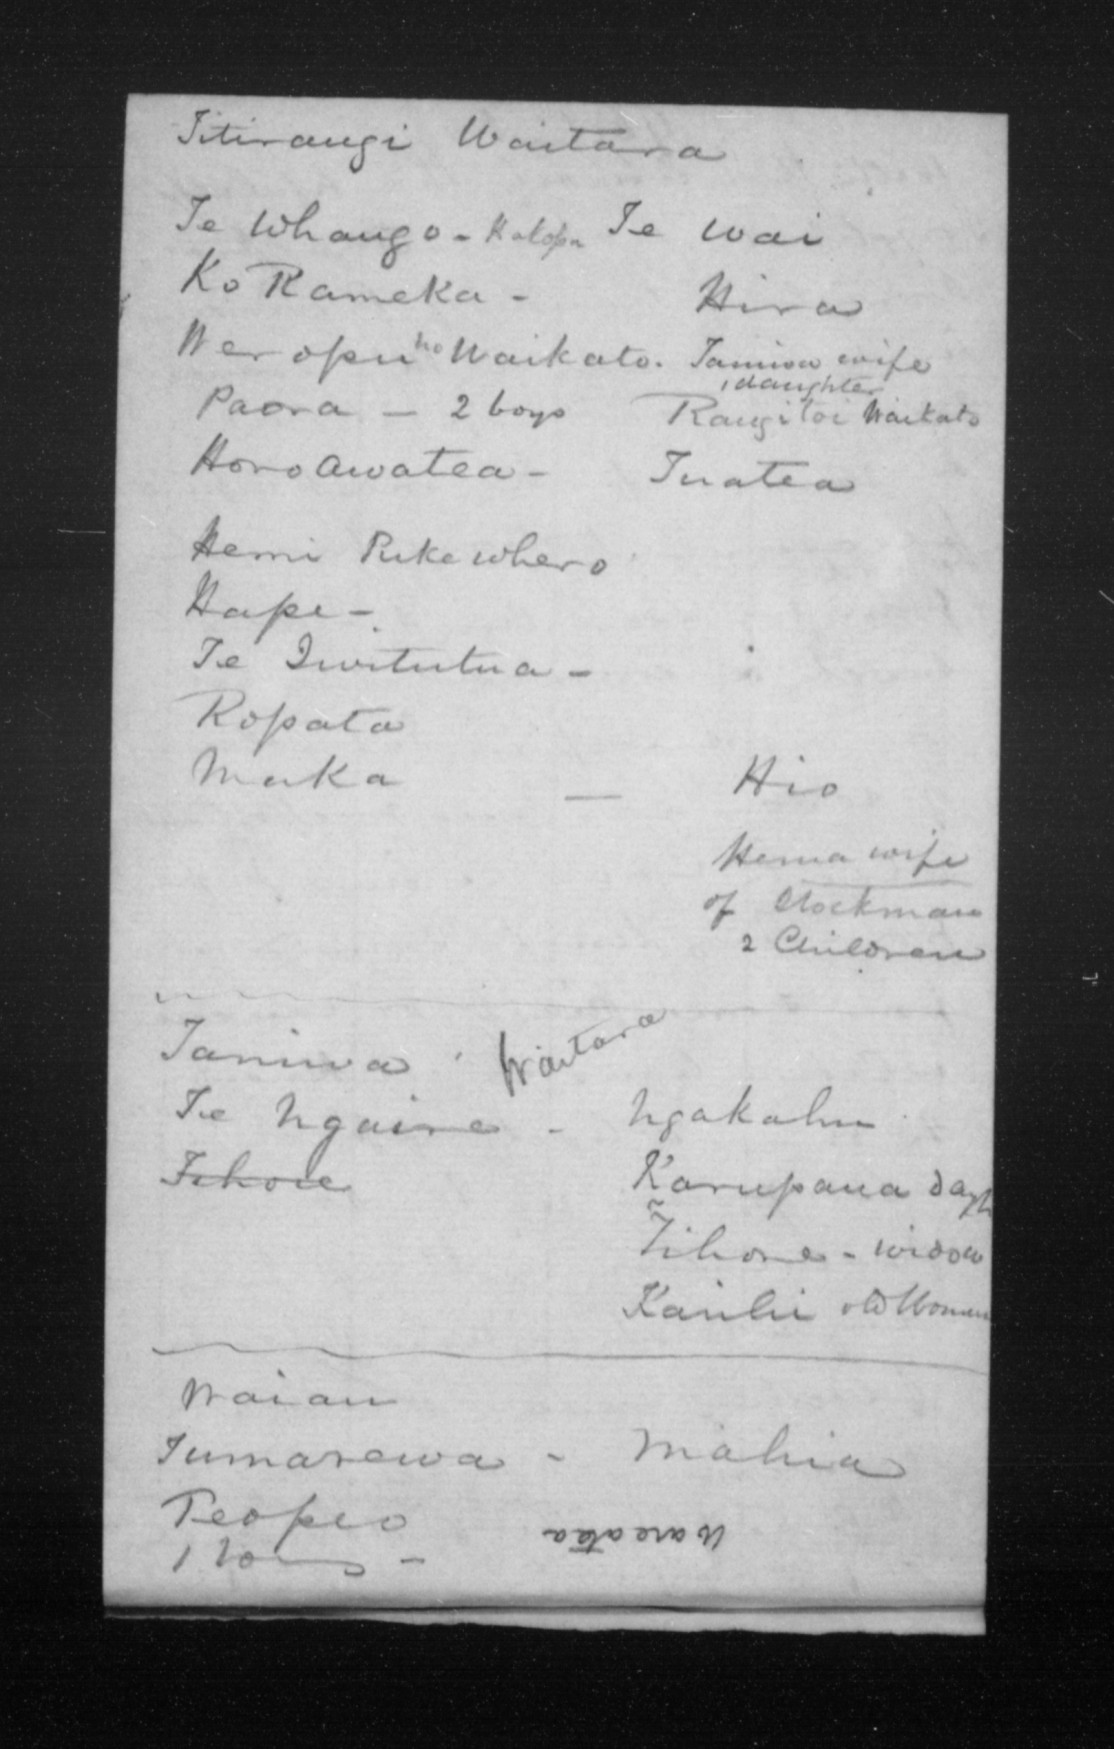 Titirangi Waitara
Te Whango - Hakopa Te Wai
Ko Rameka - Hira
Weropu no Waikato. Taniwa wife
1 daughter
Paora - 2 boys Rangitoi Waikato
Horo Awatea - Tuatea
Hemi Pukewhero
Hape -
Te Iwitutua -
Ropata
Maka — Hio
Hema wife
of Stockman
2 Children
Taniwa Waitara
Te Ngaire - Ngakahu
Tihore Karupana
Tihore - widow
Kaiuhi old Woman
Waiau
Tumarewa - Mahia
Peopeo
Wareatea
1